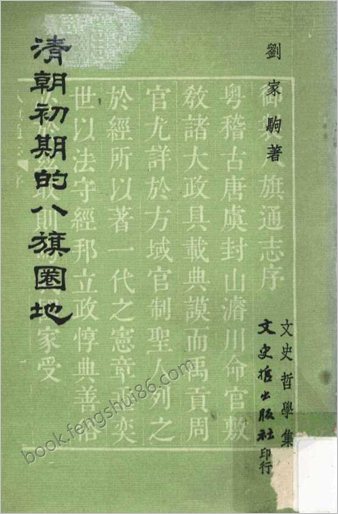 劉家駒著
文史哲學集
文史哲出版社印行
清朝初期的八旗圈地
御製八旗通志序
粵稽古唐虞封山濬川命官敷
教諸大政具載典謨而禹貢周
官尤詳於方域官制聖人列之
於經所以著一代之憲章奕
世以法守經邦立政惇典善俗
家受
book.fengshui86.com